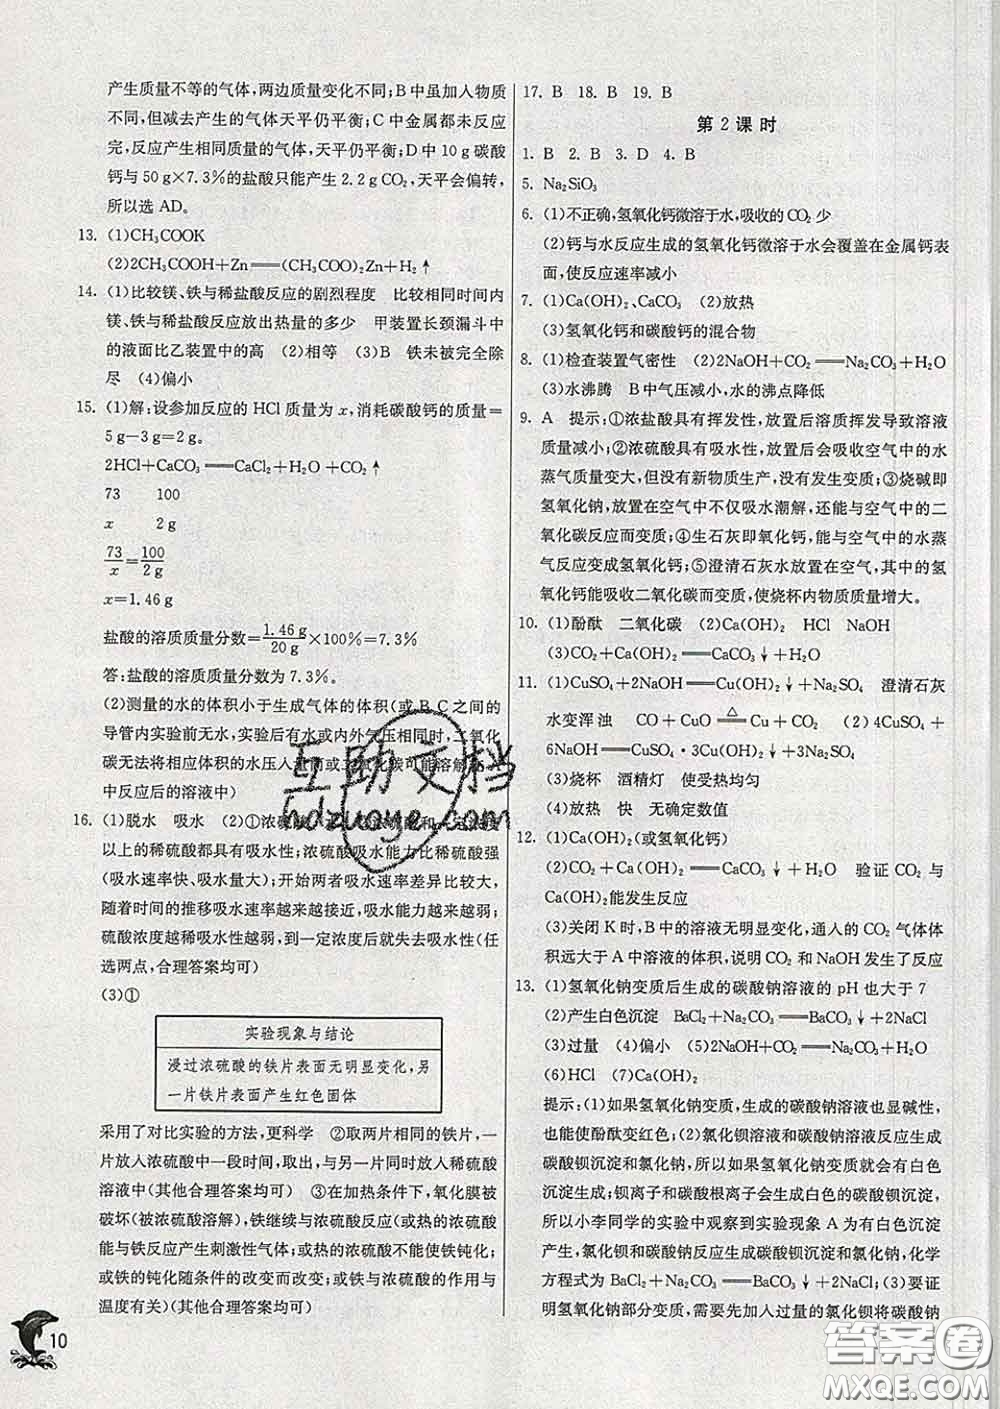 产生质量不等的气体,两边质量变化不同;B中虽加人物质
不同,但减去产生的气体天平仍平衡;C中金属都未反应
完,反应产生相同质量的气体,天平仍平衡;D中10g碳酸
钙与50g×7.3%的盐酸只能产生2.2gCO₂,天平会偏转,
所以选AD。
13. (1)CH₃COOK
(2)2CH₃COOH+Zn══(CH₃COO)₂Zn+H₂↑
14. (1)比较镁、铁与稀盐酸反应的剧烈程度 比较相同时间内
镁、铁与稀盐酸反应放出热量的多少 甲装置长颈漏斗中
的液面比乙装置中的高 (2)相等 (3)B 铁未被完全除
尽 (4)偏小
15. (1)解:设参加反应的HCl质量为x,消耗碳酸钙的质量=
5g-3g=2g。
2HCl+CaCO₃══CaCl₂+H₂O+CO₂↑
73 100
x 2g
73/x=100/2g
x=1.46g
盐酸的溶质质量分数=1.46g/20g×100%=7.3%
答:盐酸的溶质质量分数为7.3%。
(2)测量的水的体积小于生成气体的体积(或B、C之间的
导管内实验前无水,实验后有水或内外气压相同时,二氧化
碳无法将相应体积的水压人量筒或二氧化碳可能溶解在
中反应后的溶液中)
16. (1)脱水 吸水 (2)①浓硫酸
以上的稀硫酸都具有吸水性;浓硫酸吸水能力比稀硫酸强
(吸水速率快、吸水量大);开始两者吸水速率差异比较大,
随着时间的推移吸水速率越来越接近,吸水能力越来越弱;
硫酸浓度越稀吸水性越弱,到一定浓度后就失去吸水性(任
选两点,合理答案均可)
(3)①
实验现象与结论
浸过浓硫酸的铁片表面无明显变化,另
一片铁片表面产生红色固体
采用了对比实验的方法,更科学 ②取两片相同的铁片,一
片放人浓硫酸中一段时间,取出,与另一片同时放人稀硫酸
溶液中(其他合理答案均可) ③在加热条件下,氧化膜被
破坏(被浓硫酸溶解),铁继续与浓硫酸反应(或热的浓硫酸
能与铁反应产生刺激性气体;或热的浓硫酸不能使铁钝化;
或铁的钝化随条件的改变而改变;或铁与浓硫酸的作用与
温度有关)(其他合理答案均可)
10
17. B 18. B 19. B
第2课时
1. B 2. B 3. D 4. B
5. Na₂SiO₃
6. (1)不正确,氢氧化钙微溶于水,吸收的CO₂少
(2)钙与水反应生成的氢氧化钙微溶于水会覆盖在金属钙表
面,使反应速率减小
7. (1)Ca(OH)₂、CaCO₃ (2)放热
(3)氢氧化钙和碳酸钙的混合物
8. (1)检查装置气密性 (2)2NaOH+CO₂══Na₂CO₃+H₂O
(3)水沸腾 B中气压减小,水的沸点降低
9. A 提示:①浓盐酸具有挥发性,放置后溶质挥发导致溶液
质量减小;②浓硫酸具有吸水性,放置后会吸收空气中的水
蒸气质量变大,但没有新物质生产,没有发生变质;③烧碱即
氢氧化钠,放置在空气中不仅吸水潮解,还能与空气中的二
氧化碳反应而变质;④生石灰即氧化钙,能与空气中的水蒸
气反应变成氢氧化钙;⑤澄清石灰水放置在空气,其中的氢
氧化钙能吸收二氧化碳而变质,使烧杯内物质质量增大。
10. (1)酚酞 二氧化碳 (2)Ca(OH)₂ HCl NaOH
(3)CO₂+Ca(OH)₂══CaCO₃↓+H₂O
11. (1)CuSO₄+2NaOH══Cu(OH)₂↓+Na₂SO₄ 澄清石灰
水变浑浊 CO+CuO△══Cu+CO₂ (2)4CuSO₄+
6NaOH══CuSO₄·3Cu(OH)₂↓+3Na₂SO₄
(3)烧杯 酒精灯 使受热均匀
(4)放热 快 无确定数值
12. (1)Ca(OH)₂(或氢氧化钙)
(2)CO₂+Ca(OH)₂══CaCO₃↓+H₂O 验证CO₂与
Ca(OH)₂能发生反应
(3)关闭K时,B中的溶液无明显变化,通人的CO₂气体体
积远大于A中溶液的体积,说明CO₂和NaOH发生了反应
13. (1)氢氧化钠变质后生成的碳酸钠溶液的pH也大于7
(2)产生白色沉淀 BaCl₂+Na₂CO₃══BaCO₃↓+2NaCl
(3)过量 (4)偏小 (5)2NaOH+CO₂══Na₂CO₃+H₂O
(6)HCl (7)CaCO₃
提示:(1)如果氢氧化钠变质,生成的碳酸钠溶液也显碱性,
也能使酚酞变红色;(2)氯化钡溶液和碳酸钠溶液反应生成
碳酸钡沉淀和氯化钠,所以,如果氢氧化钠变质就会有白色
沉淀生成;钡离子和碳酸根离子会生成白色的碳酸钡沉淀,
所以小李同学的实验中观察到实验现象A为有白色沉淀
产生,氯化钡和碳酸钠反应生成碳酸钡沉淀和氯化钠,化学
方程式为BaCl₂+Na₂CO₃══BaCO₃↓+2NaCl;(3)要证
明氢氧化钠部分变质,需要先加人过量的氯化钡将碳酸钠
互助文档
hdzuoye.com
答案圈
MXQE.COM